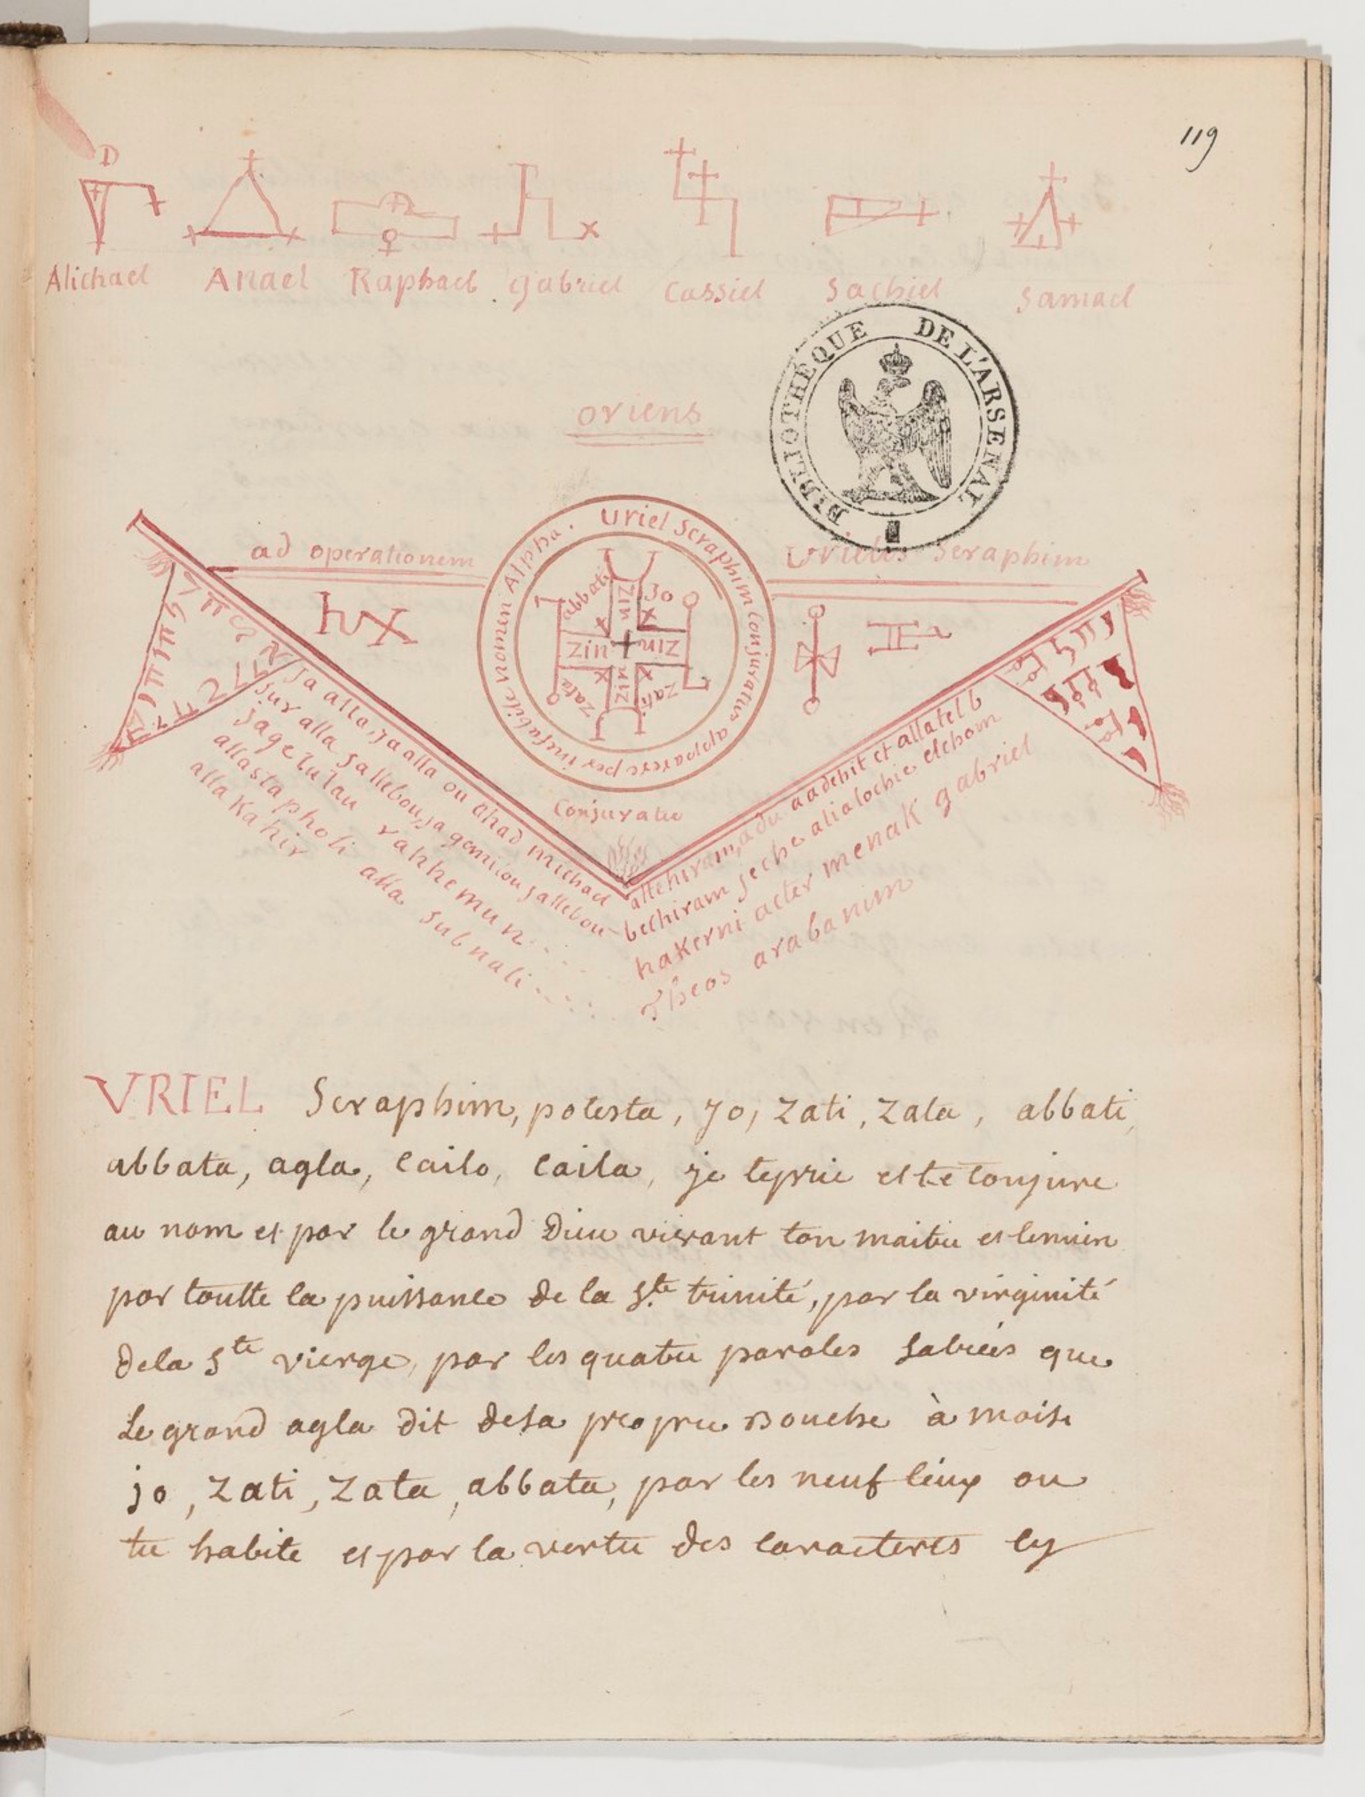 119
D
Alichael Anael Raphael gabriel Cassiel Sachiel Samael
BIBLIOTHÈQUE DE L'ARSENAL
oriens
ad operationem
Uriel Seraphim Conjuratus apparere per inefabile nomen Alpha.
Seraphim
abbati
zin
Jo
zin
zin
zata
zin
zati
Conjuratio
ja allo, ja alla ou ahad michael
sur alla jallebou, ja gemi ou jallebou
rahhemun
allastapholi alla subnali
alla Kahir
allehiram, adu aadehit et allatel b
bechiram jeche alialochie elchom
hakerni acter menak gabriel
Theos arabanim
VRIEL Seraphim, potesta, Jo, Zati, Zata, abbati,
abbata, agla, Cailo, Caila, je te prie et te Conjure
au nom et par le grand Dieu vivant ton maitre et le mien
par toutte la puissance de la Ste trinité, par la virginité
de la Ste vierge, par les quatre paroles Sabrées que
Le grand agla dit de sa propre Bouche à moise
jo, Zati, Zata, abbata, par les neuf lieux ou
tu habite et par la vertu des Caracteres Cy